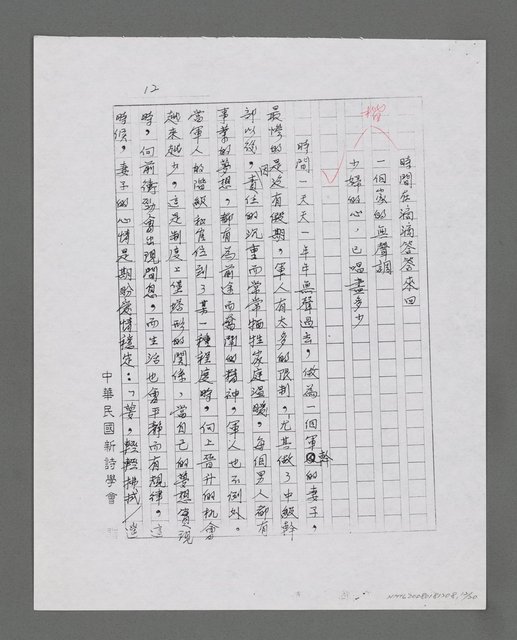 12
楷
時間在滴滴答答來回
一個家的無聲調
少婦的心,已唱盡多少
時間一天天一年年無聲過去,做為一個軍幹的妻子,
最慘的是沒有假期,軍人有太多的限制,尤其做了中級幹
部以後,因責任的沉重而常常犧牲家庭溫暖,每個男人都有
事業的夢想,都有為前途而奮鬥的精神,軍人也不例外。
當軍人的階級和官位到了某一種程度時,向上晉升的机會
越來越少,這是制度上僧塔形的関係,當自己的夢想實現
時,向前衝勁會出現間息,而生活也會平靜而有規律,這
時候,妻子的心情是期盼愛情穩定:「夢,輕輕拂拭/造
中華民國新詩學會
NMTL20080181208,12/20